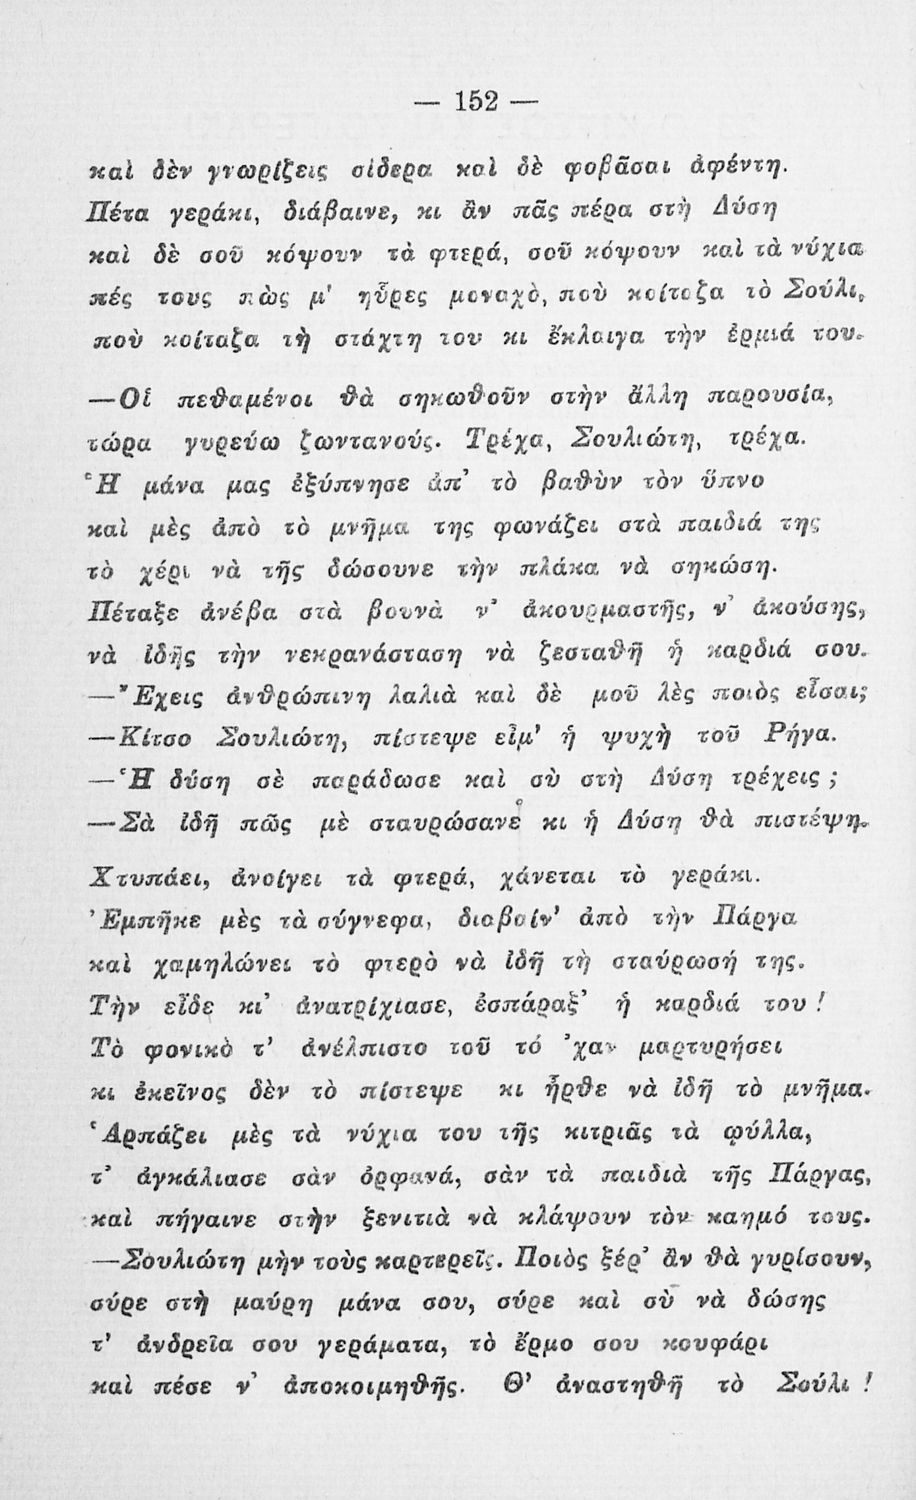 — 152 —
καὶ δὲν γνωρίζεις σίδερα καὶ δὲ φοβᾶσαι ἀφέντη.
Πέτα γεράκι, διάβαινε, κι ἂν πᾶς πέρα στὴ Δύση
καὶ δὲ σοῦ κόψουν τὰ φτερά, σοῦ κόψουν καὶ τὰ νύχια
πές τους πὼς μ' ηὗρες μοναχὸ, ποὺ κοίταζα τὸ Σούλι,
ποὺ κοίταζα τὴ στάχτη του κι ἔκλαιγα τὴν ἐρμιά του.
—Οἱ πεθαμένοι θὰ σηκωθοῦν στὴν ἄλλη παρουσία,
τώρα γυρεύω ζωντανούς. Τρέχα, Σουλιώτη, τρέχα.
Ἡ μάνα μας ἐξύπνησε ἀπ' τὸ βαθὺν τὸν ὕπνο
καὶ μὲς ἀπὸ τὸ μνῆμα της φωνάζει στὰ παιδιά της
τὸ χέρι νὰ τῆς δώσουνε τὴν πλάκα νὰ σηκώση.
Πέταξε ἀνέβα στὰ βουνὰ ν' ἀκουρμαστῆς, ν' ἀκούσης,
νὰ ἰδῆς τὴν νεκρανάσταση νὰ ζεσταθῆ ἡ καρδιά σου.
—Ἔχεις ἀνθρώπινη λαλιὰ καὶ δὲ μοῦ λὲς ποιὸς εἶσαι;
—Κίτσο Σουλιώτη, πίστεψε εἶμ' ἡ ψυχὴ τοῦ Ρήγα.
—Ἡ δύση σὲ παράδωσε καὶ σὺ στὴ Δύση τρέχεις ;
—Σὰ ἰδῆ πῶς μὲ σταυρώσανε κι ἡ Δύση θὰ πιστέψη.
Χτυπάει, ἀνοίγει τὰ φτερά, χάνεται τὸ γεράκι.
Ἐμπῆκε μὲς τὰ σύγνεφα, διαβαίν' ἀπὸ τὴν Πάργα
καὶ χαμηλώνει τὸ φτερὸ νὰ ἰδῆ τὴ σταύρωσή της.
Τὴν εἶδε κι' ἀνατρίχιασε, ἐσπάραξ' ἡ καρδιά του !
Τὸ φονικὸ τ' ἀνέλπιστο τοῦ τό 'χαν μαρτυρήσει
κι ἐκεῖνος δὲν τὸ πίστεψε κι ἦρθε νὰ ἰδῆ τὸ μνῆμα.
Ἁρπάζει μὲς τὰ νύχια του τῆς κιτριᾶς τὰ φύλλα,
τ' ἀγκάλιασε σὰν ὀρφανά, σὰν τὰ παιδιὰ τῆς Πάργας,
καὶ πήγαινε στὴν ξενιτιὰ νὰ κλάψουν τὸν καημό τους.
—Σουλιώτη μὴν τοὺς καρτερεῖς. Ποιὸς ξέρ' ἂν θὰ γυρίσουν,
σύρε στὴ μαύρη μάνα σου, σύρε καὶ σὺ νὰ δώσης
τ' ἀνδρεῖα σου γεράματα, τὸ ἔρμο σου κουφάρι
καὶ πέσε ν' ἀποκοιμηθῆς. Θ' ἀναστηθῆ τὸ Σούλι !